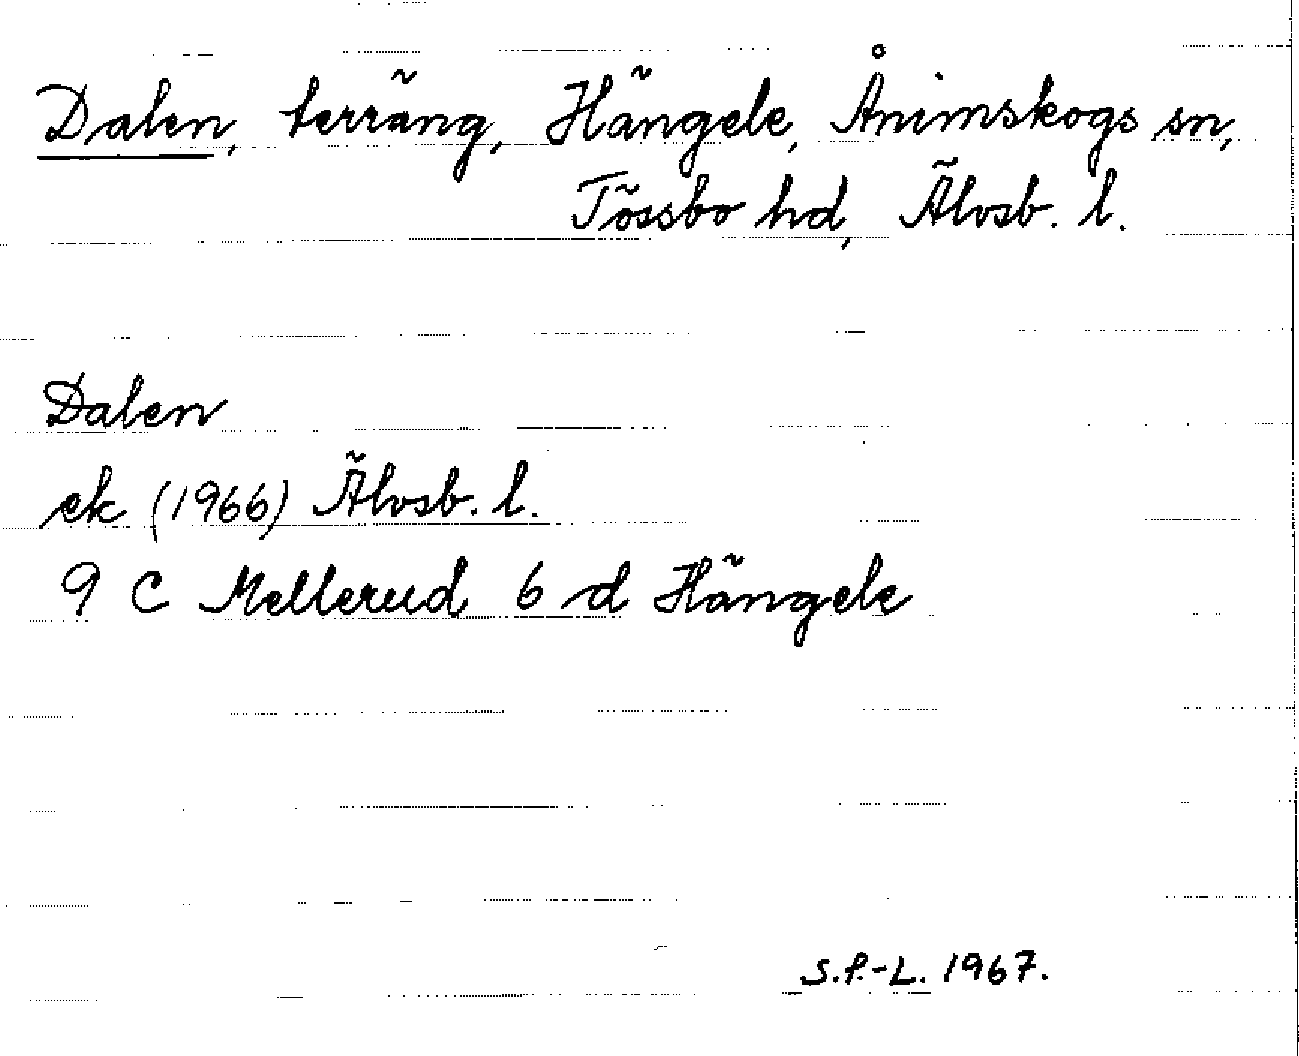 Dalen, terräng, Hängele, Ånimskogs sn,
Tössbo hd, Älvsb. l.
Dalen
ek (1966) Älvsb. l.
9 C Mellerud 6 d Hängele
S.P.-L. 1967.